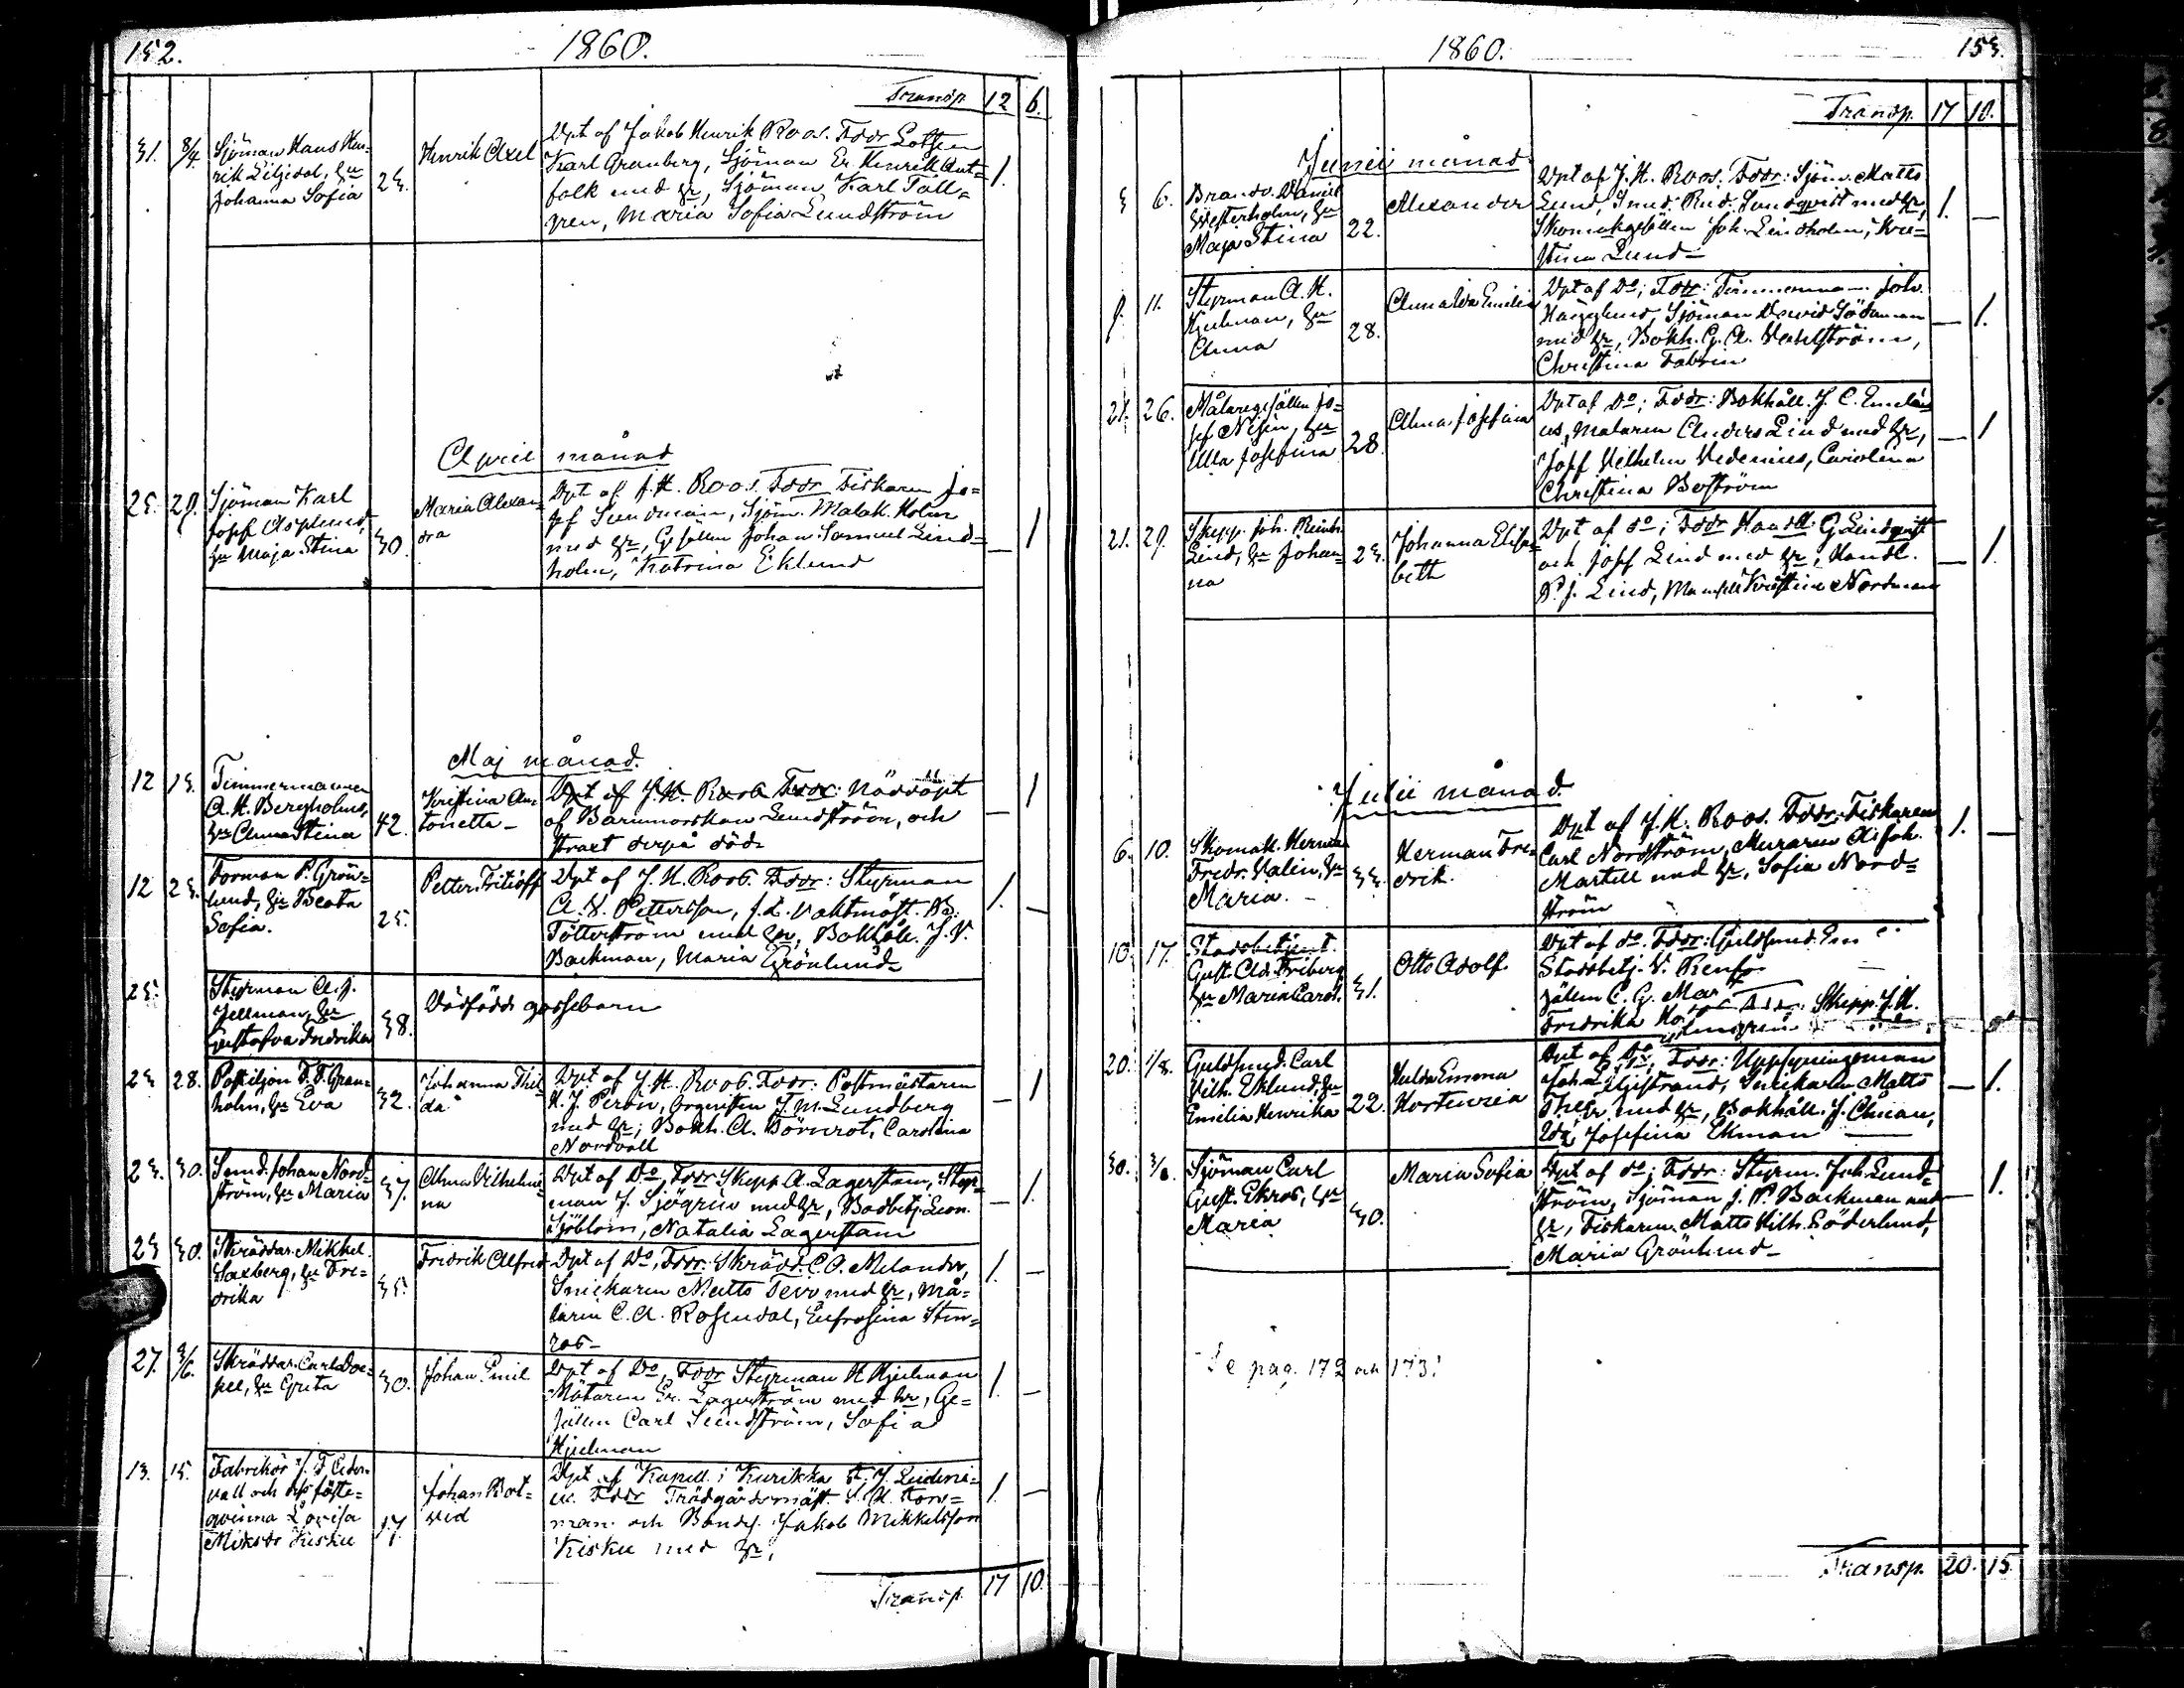 152.
1860.
Transp. 12 6.
31. 8/4. Sjöman Hans Hen=
rik Liljedal, hu
Johanna Sofia
23.
Henrik Axel
Dpt af Jakob Henrik Roos. Fddr Lotsen
Karl Granberg, Sjöman Er. Henrik Ant=
folk med hu, Sjöman Karl Täll=
gren, Maria Sofia Lundström
1.
April månad
25. 29. Sjöman Karl
Josef Asplund,
hu Maja Stina
30.
Maria Alexan
dra
Dpt af J. H. Roos. Fddr Fiskaren Jo=
sef Sundman, Sjöm. Malak. Holm
med hu, Gesällen Johan Samuel Lind=
holm, Katrina Eklund
— 1
Maj månad.
12 13. Timmermannen
A. H. Bergholm,
hu Anna Stina
42.
Kristina An=
tonetta —
Dpt af J. H. Roos Fddr: Nöddöpt
af Barnmorskan Lundström, och
straxt derpå död
— 1
12 23. Forman P. Grön=
lund, hu Beata
Sofia.
25.
Petter Fritioff
Dpt af J. H. Roos. Fddr: Styrman
A. V. Pettersson, f.d. vaktmäst.
Tötterström med hu, Bokhåll. J. V.
Backman, Maria Grönlund
1. —
25. Styrman A. J.
Jellman, hu
Gustafva Fredrika
38.
Dödfödd gossebarn
23 28. Postiljon F. F. Gran=
holm, hu Eva
32.
Johanna Thil
da
Dpt af J. H. Roos. Fddr: Postmästaren
H. J. Perón, Organisten J. M. Lundberg
med hu; Bokh. A. Börnrot, Carolina
Nordvall
— 1
23. 30. Smed. Johan Nord=
ström, hu Maria
37.
Alma Vilhelmi=
na
Dpt af Do, Fddr Skepp. A. Lagerstam, Styr=
man J. Sjögrén med hu, Badbetj. Leon.
Sjöblom, Natalia Lagerstam
— 1.
23 30. Skräddar. Mikkel
Saxberg, hu Fre=
drika
35.
Fredrik Alfred
Dpt af Do, Fddr: Skrädd. C. O. Melander,
Snickaren Matts Teir med hu, Må=
laren C. A. Rosendal, Eufrosina Sten=
ros —
1. —
27. 3/6. Skräddar. Carl Doe=
pel, hu Greta
30.
Johan Emil
Dpt af Do, Fddr Styrman K. Hjelman
Mätaren Er. Lagerström med hu, Ge=
sällen Carl Sundström, Sofia
Hjelman
1. —
13. 15. Fabrikör J. F. Ceder=
vall och dess fäste=
qvinna Lovisa
Miksdr Kisku
17.
Johan Bot=
vid
Dpt af Kapell. i Kurikka J. Leideni=
us. Fddr Trädgårdsmäst. S. H. Fors=
man och Bondes. Jakob Mikkelsson
Kisku med hu,
1. —
Transp. 17 10.
1860.
153.
Transp. 17 10.
Junii månad
3 6. Brandv. Daniel
Westerholm, hu
Maja Stina
22.
Alexander
Dpt af J. H. Roos. Fddr: Sjöm. Matts
Lund, Smed. Rud. Sundqvist med hu,
Skomakgesällen Joh. Lindholm, Kri=
stina Lund —
1. —
9. 11. Styrman A. H.
Hjelman, hu
Anna
28.
Anna Ida Emilia
Dpt af Do; Fddr: Timmerman Joh.
Hägglund, Sjöman David Södman
med hu, Bokh. G. A. Wahlström,
Christina Fabrin
— 1.
21. 26. Målaregesällen Jo=
sef Nisén, hu
Ulla Josefina
28
Alma Josefina
Dpt af Do; Fddr: Bokhåll. J. C. Emelé
us, Målaren Anders Lind med hu,
Josef Vilhelm Vedenius, Carolina
Christina Boström
— 1
21. 29. Skepp. Joh. Reinh.
Lind, hu Johan=
na
23.
Johanna Elisa=
beth
Dpt af do; Fddr Handl. G. Lindqvist
och Josef Lind med hu, Handl.
P. J. Lind, Mamsell Kristina Nordman
— 1.
Julii månad.
6. 10. Skomak. Herman
Fredr. Valin, hu
Maria. —
33.
Herman Fre=
drik.
Dpt af J. H. Roos. Fddr. Fiskaren
Carl Nordström, Muraren Joh.
Martell med hu, Sofia Nord=
ström
1. —
10. 17. Stadsbetjent.
Gust. Ad. Friberg
hu Maria Carol.
31.
Otto Adolf.
Dpt af do. Fddr: Guldsmed. Em
Stadsbetj. V. Renfo
sälen C. G. Mar
Fredrika Ho
Skepp. J. H.
20. 1/8. Guldsmed. Carl
Vilh. Eklund, hu
Emilia Henrika
22.
Hulda Emma
Hortensia
Dpt af Do, Fddr: Uppsyningsman
Joh. Liljestrand, Snickaren Matts
Their med hu, Bokhåll. J. Åman,
Josefina Ekman —
— 1.
30. 3/8. Sjöman Carl
Gust. Ekros, hu
Maria
30.
Maria Sofia
Dpt af do; Fddr: Styrm. Joh. Lund=
ström, Sjöman J. P. Backman med
hu, Fiskaren Matts Vilh. Söderlund,
Maria Grönlund —
— 1.
Se pag. 172 och 173!
Transp. 20. 15.